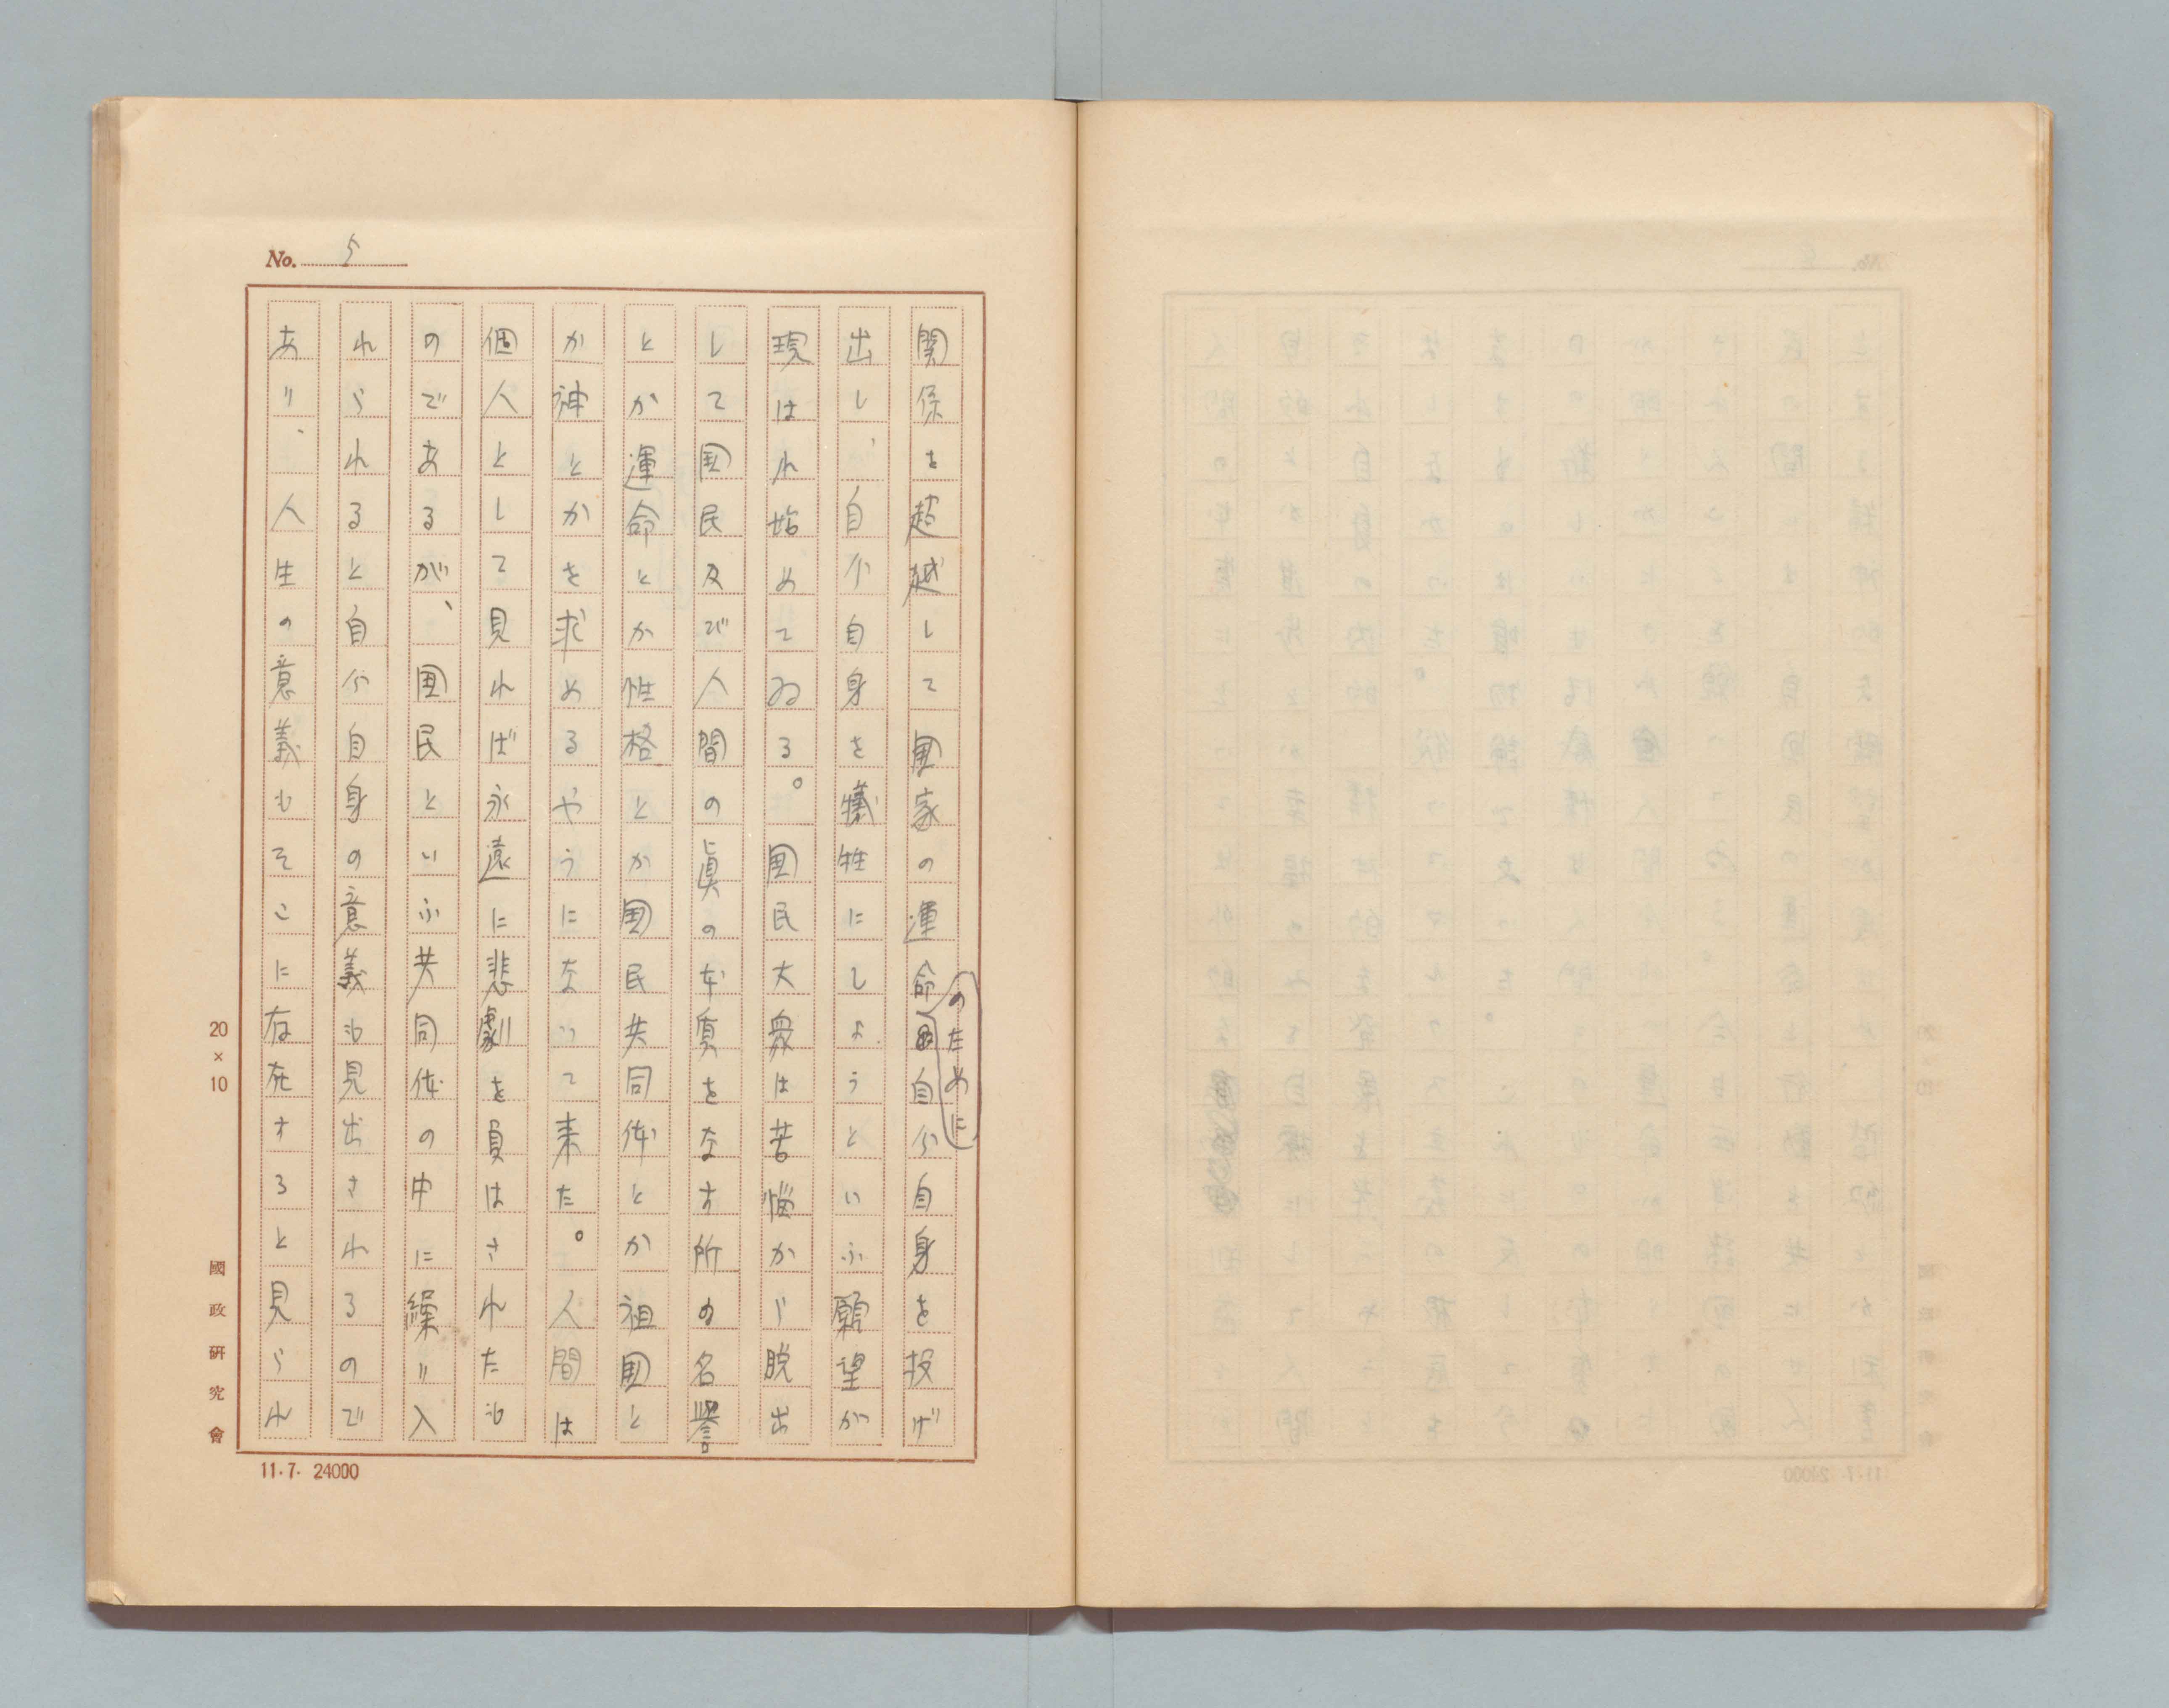 No. 5
関係を超越して国家の運命のために自分自身を投げ
出し、自分自身を犠牲にしようといふ願望が
現はれ始めてゐる。国民大衆は苦悩から脱出
して国民及び人間の眞の本質をなす所の名誉
とか運命とか性格とか国民共同体とか祖国と
か神とかを求めるやうになつて来た。人間は
個人として見れば永遠に悲劇を負はされたも
のであるが、国民といふ共同体の中に繰り入
れられると自分自身の意義も見出されるので
あり、人生の意義もそこに存在すると見られ
20×10
國政研究會
11.7. 24000